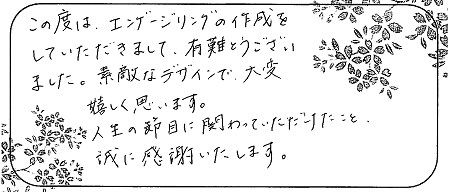 この度は、エンゲージリングの作成を
していただきまして、有難とうござい
ました。素敵なデザインで、大変
嬉しく思います。
人生の節目に関わっていただけたこと、
誠に感謝いたします。